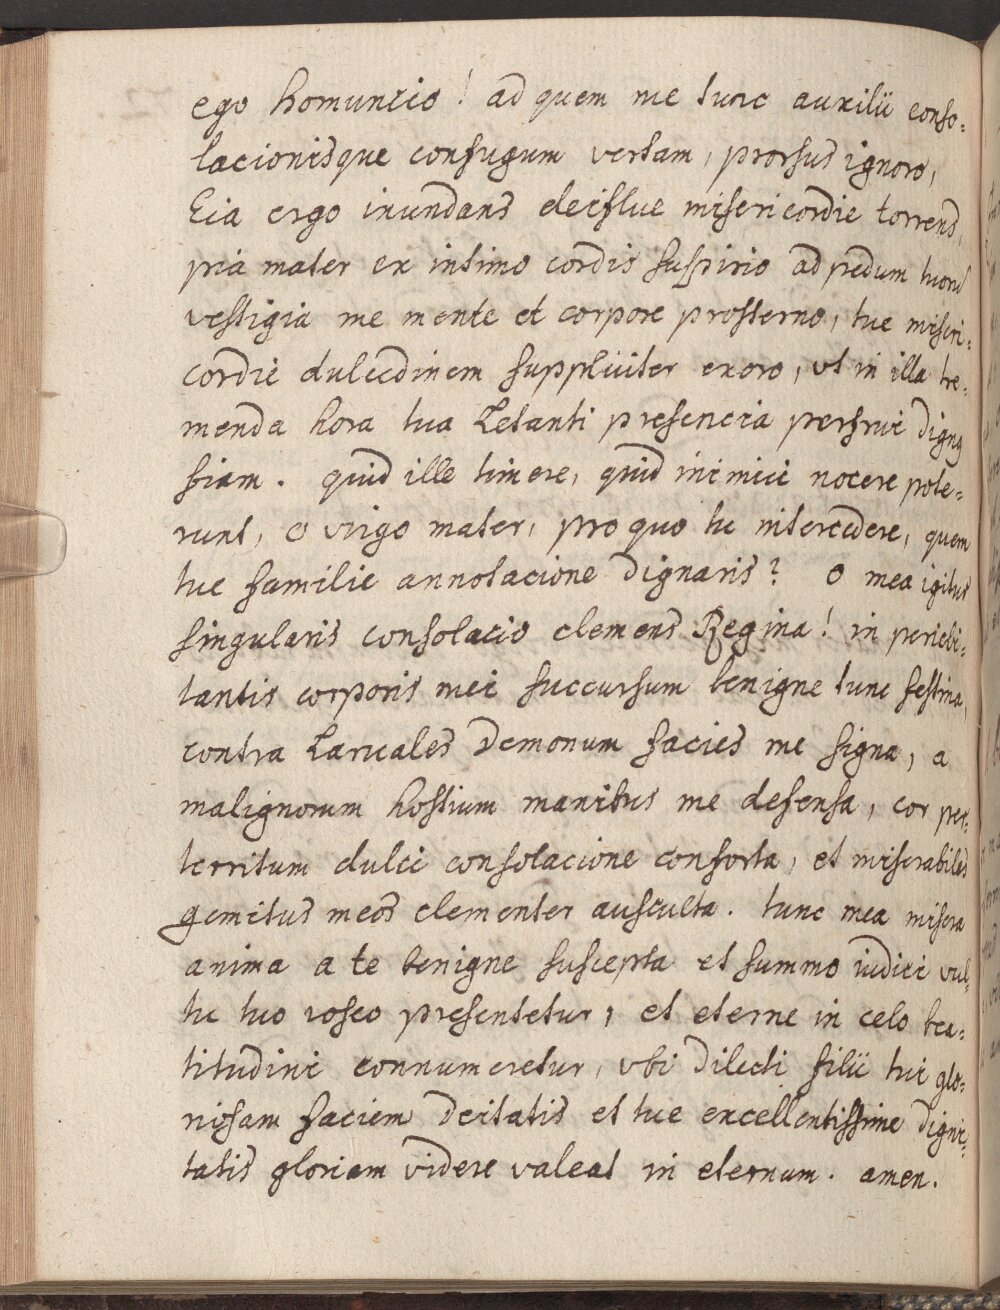 ego homuncio! ad quem me tunc auxilii conso-
lacionisque confugum vertam, prorsus ignoro,
Eia ergo inundans deiflue misericordie torrens,
pia mater ex intimo cordis suspirio ad pedum tuorum
vestigia me mente et corpore prosterno, tue miseri-
cordie dulcedinem suppliciter exoro, ut in illa tre-
menda hora tua Letanti presencia perfrui digng
fiam. quid ille timere, quid inimici nocere pote-
runt, o virgo mater, pro quo tu intercedere, quem
tue familie annotacione dignaris? o mea igitur
singularis consolacio clemens Regina! in pericli-
tantis corporis mei succursum benigne tunc festina,
contra Larvales Demonum facies me signa, a
malignorum hostium manibus me defensa, cor per-
territum dulci consolacione conforta, et miserabiles
gemitus meos clementer ausculta. tunc mea misera
anima a te benigne suscepta et summo iudici vul-
tu tuo roseo presentetur, et eterne in celo bea-
titudini connumeretur, ubi dilecti filii tui glo-
riosam faciem Deitatis et tue excellentissime digni-
tatis gloriam videre valeat in eternum. amen.